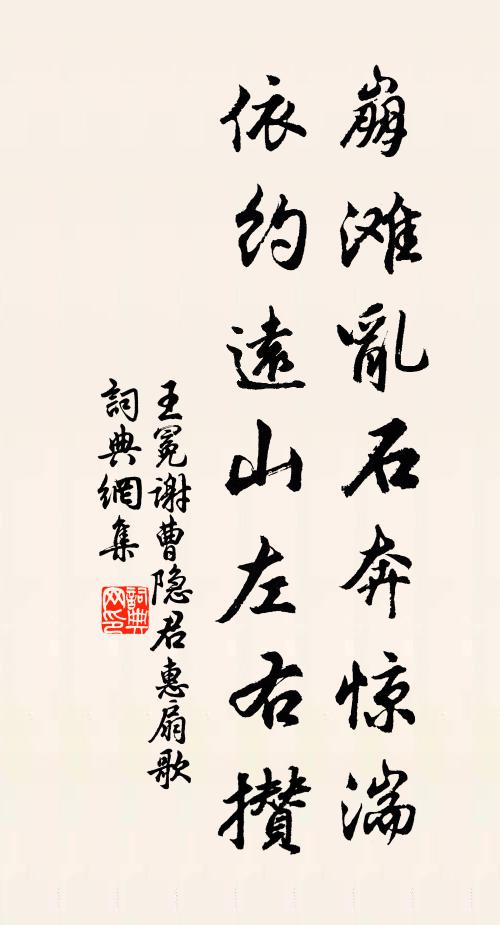 崩滩亂石奔惊湍
依约遠山左右攅
王冕谢曹隐君惠扇歌
詞典網集
詞典网印